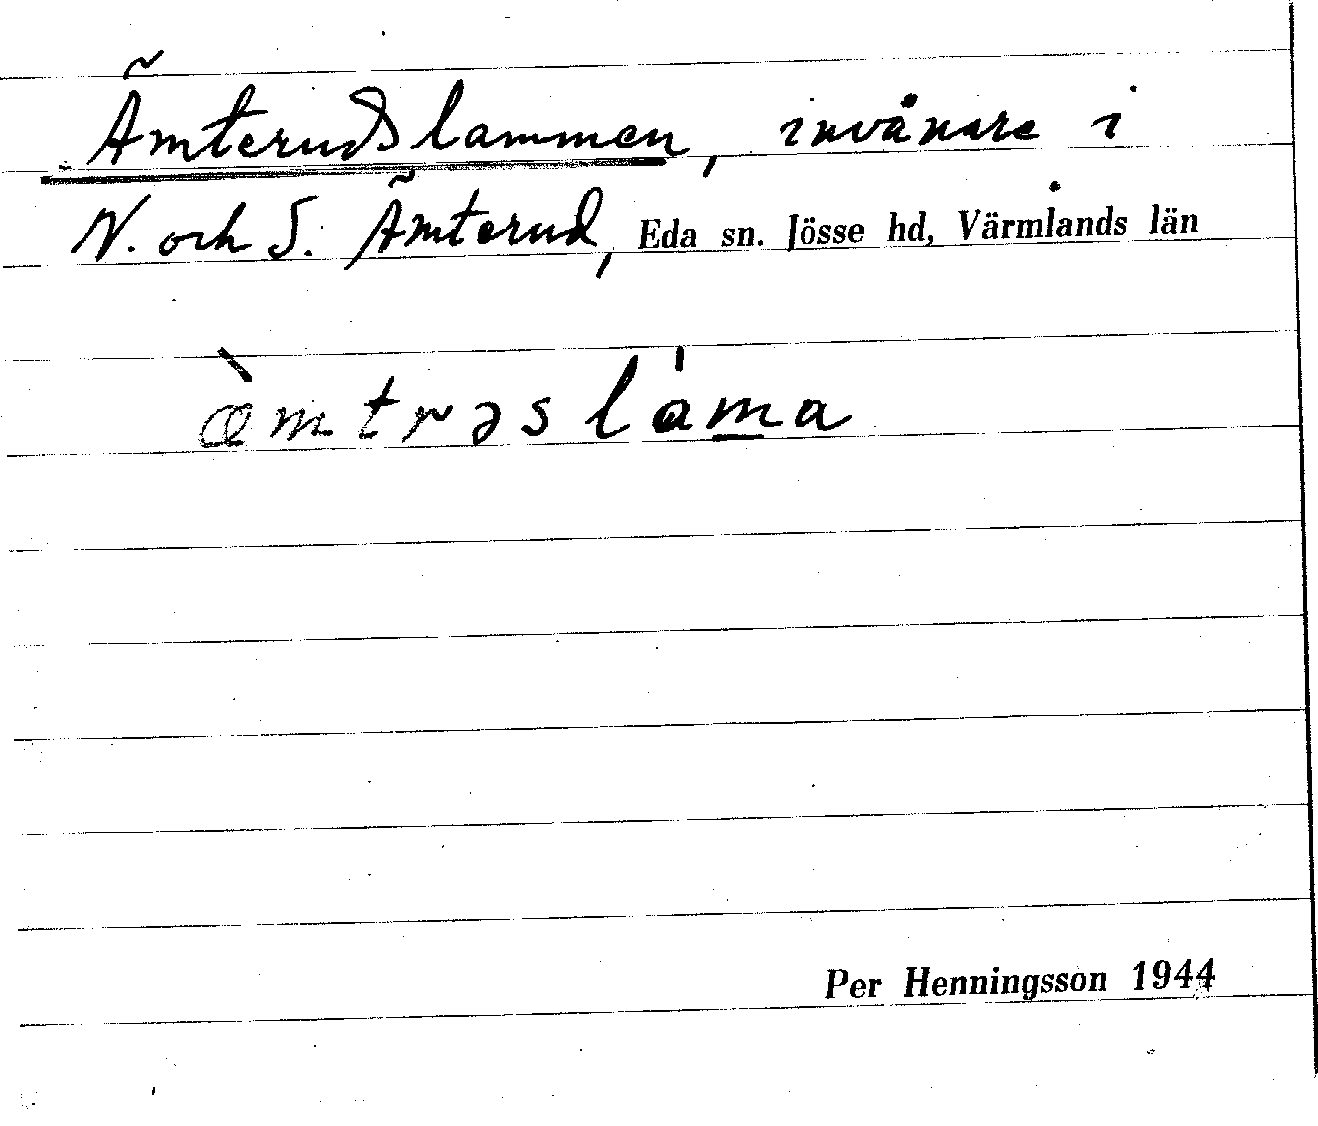 Ämterudslammen, invånare i
N. och S. Ämterud, Eda sn. Jösse hd, Värmlands län
æ̀mtrəsla̍ma
Per Henningsson 1944